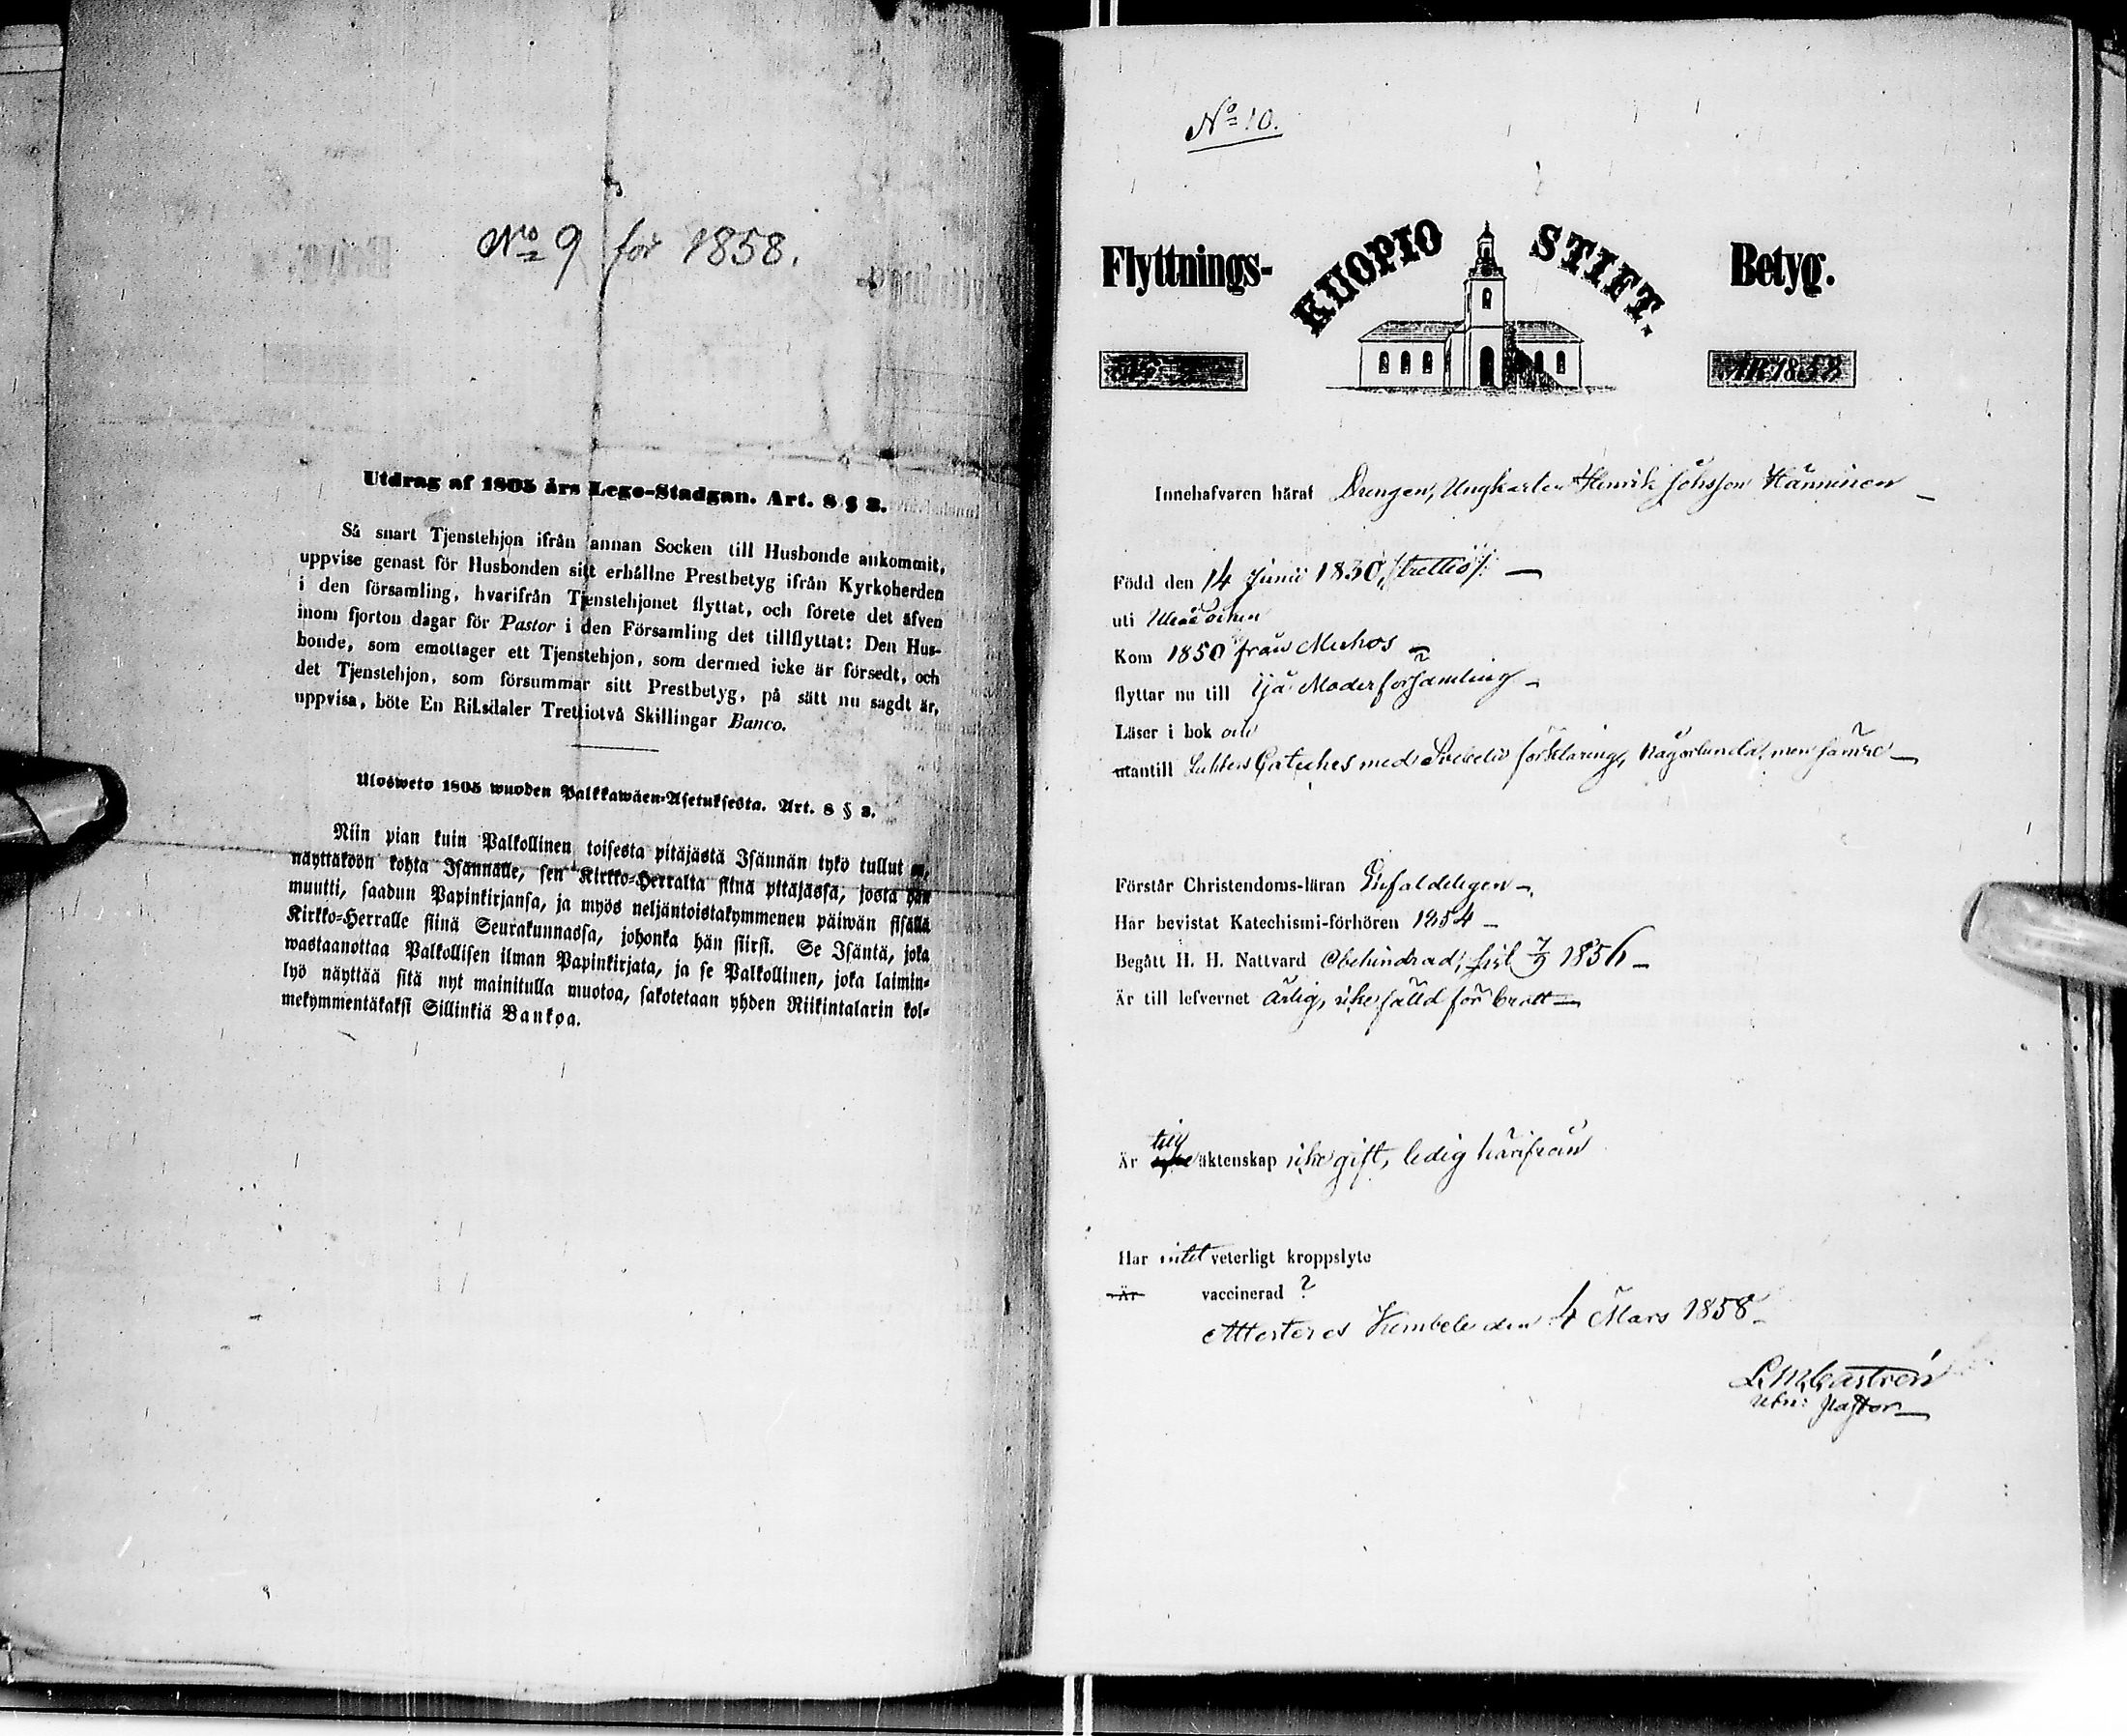 No 9 för 1858.
Utdrag af 1805 års Lego-Stadgan. Art. 8 § 3.
Så snart Tjenstehjon ifrån annan Socken till Husbonde ankommit,
uppvise genast för Husbonden sitt erhållne Prestbetyg ifrån Kyrkoherden
i den församling, hvarifrån Tjenstehjonet flyttat, och förete det äfven
inom fjorton dagar för Pastor i den Församling det tillflyttat: Den Hus-
bonde, som emottager ett Tjenstehjon, som dermed icke är försedt, och
det Tjenstehjon, som försummar sitt Prestbetyg, på sätt nu sagdt är,
uppvisa, böte En Riksdaler Trettiotvå Skillingar Banco.
Ulosweto 1805 wuoden Palkkawäen-Asetuksesta. Art. 8 § 3.
Niin pian kuin Palkollinen toisesta pitäjästä Isännän tykö tullut on,
näyttäköön kohta Isännälle, sen Kirkko-Herralta siinä pitäjässä, josta hän
muutti, saadun Papinkirjansa, ja myös neljäntoistakymmenen päiwän sisällä
Kirkko-Herralle siinä Seurakunnassa, johonka hän siirsi. Se Isäntä, joka
wastaanottaa Palkollisen ilman Papinkirjata, ja se Palkollinen, joka laimin-
lyö näyttää sitä nyt mainitulla muotoa, sakotetaan yhden Riikintalarin kol-
mekymmentäkaksi Sillinkiä Bankoa.
No 10.
Flyttnings- KUOPIO STIFT. Betyg.
ÅR 1858
Innehafvaren häraf Drengen, Ungkarlen Henrik Johsson Hänninen
Född den 14 Junii 1830 /:trettio:/
uti Uleå socken
Kom 1850 från Muhos
flyttar nu till Ijå Moderförsamling
Läser i bok och
utantill Luthers Cateches med Svebelii förklaring, någorlunda, men sämre
Förstår Christendoms-läran Enfaldeligen
Har bevistat Katechismi-förhören 1854
Begått H. H. Nattvard Obehindrad, sist 7/9 1856
Är till lefvernet ärlig, icke fälld för brott
Är till äktenskap icke gift, ledig härifrån
Har intet veterligt kroppslyte
Är vaccinerad ?
Attesteras Kembele den 4 Mars 1858
L. M. Castrén